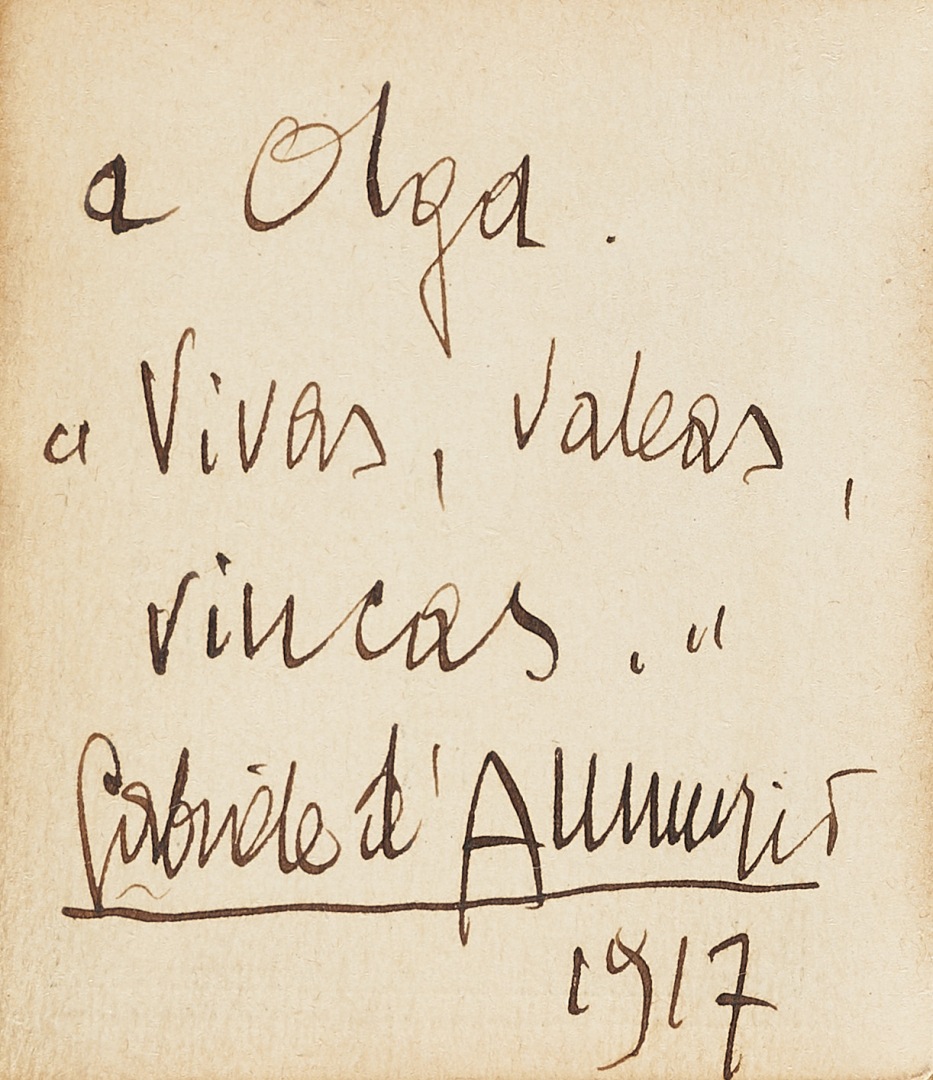 a Olga.
"Vivas, valeas,
vincas."
Gabriele d'Annunzio
1917